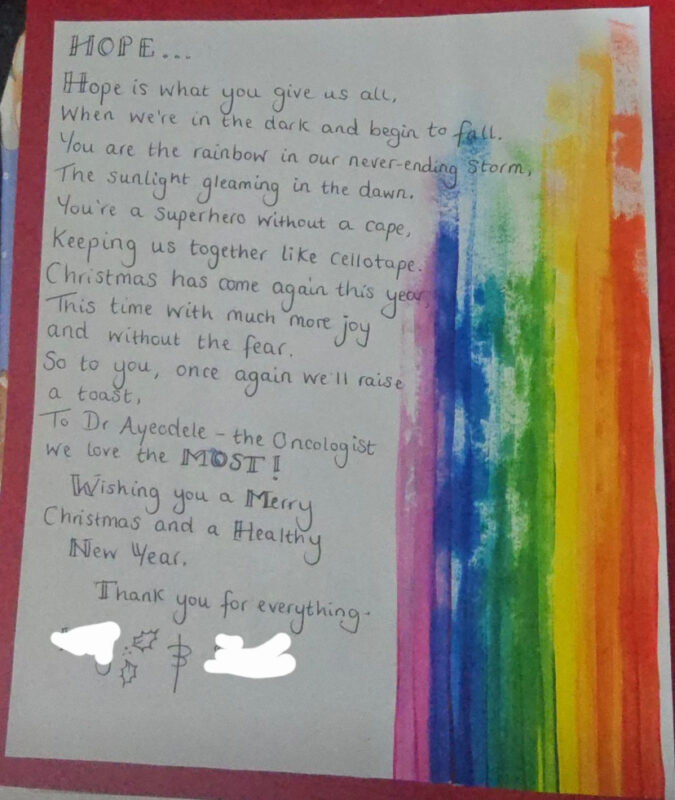 HOPE...
Hope is what you give us all,
When we're in the dark and begin to fall.
You are the rainbow in our never-ending storm,
The sunlight gleaming in the dawn.
You're a superhero without a cape,
Keeping us together like cellotape.
Christmas has come again this year,
This time with much more joy
and without the fear.
So to you, once again we'll raise
a toast,
To Dr Ayeodele - the Oncologist
we love the MOST!
Wishing you a Merry
Christmas and a Healthy
New Year.
Thank you for everything-